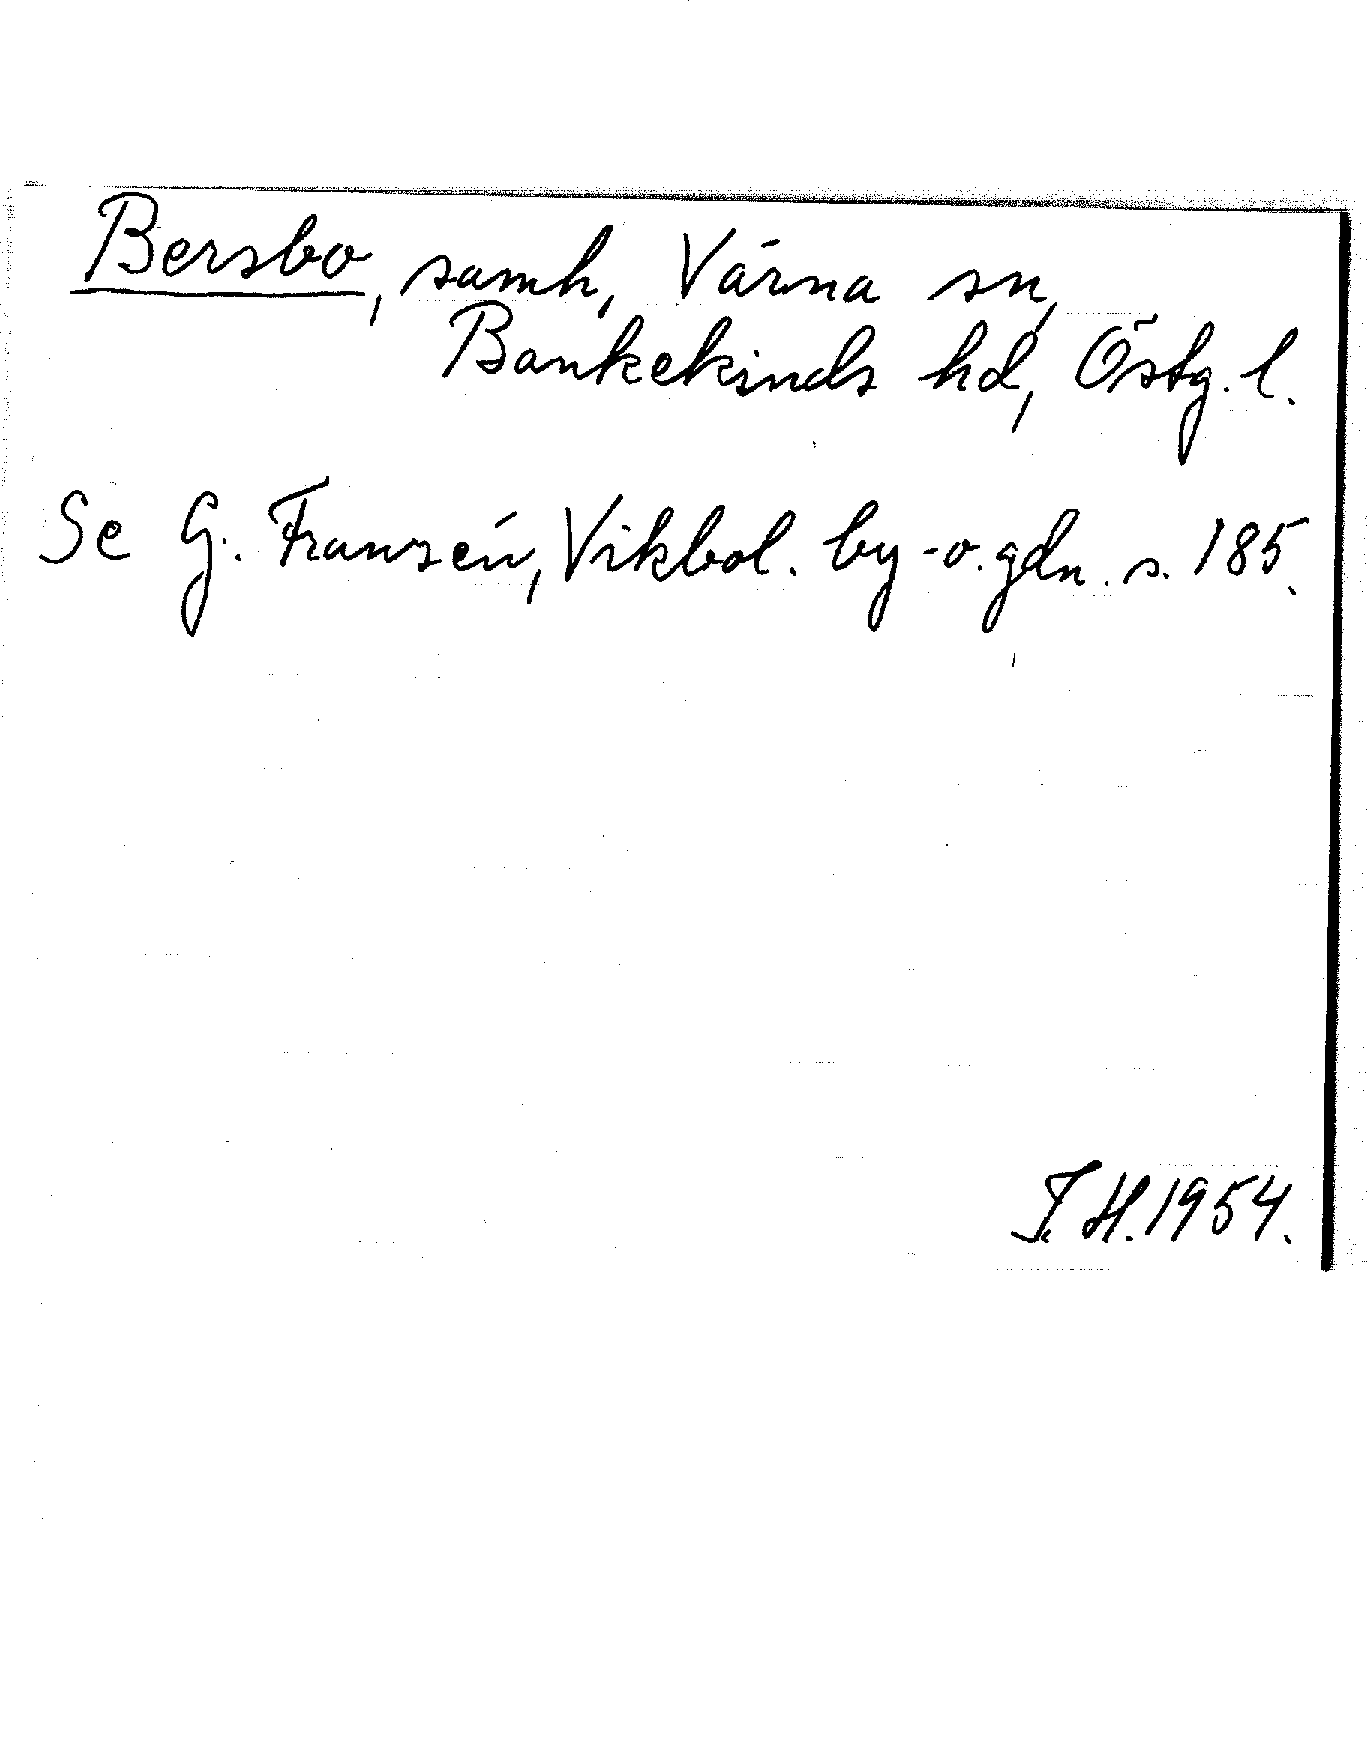 Bersbo, samh, Värna sn,
Bankekinds hd, Östg. l.
Se G. Franzén, Vikbol. by- o. gdn. s. 185.
T. H. 1954.